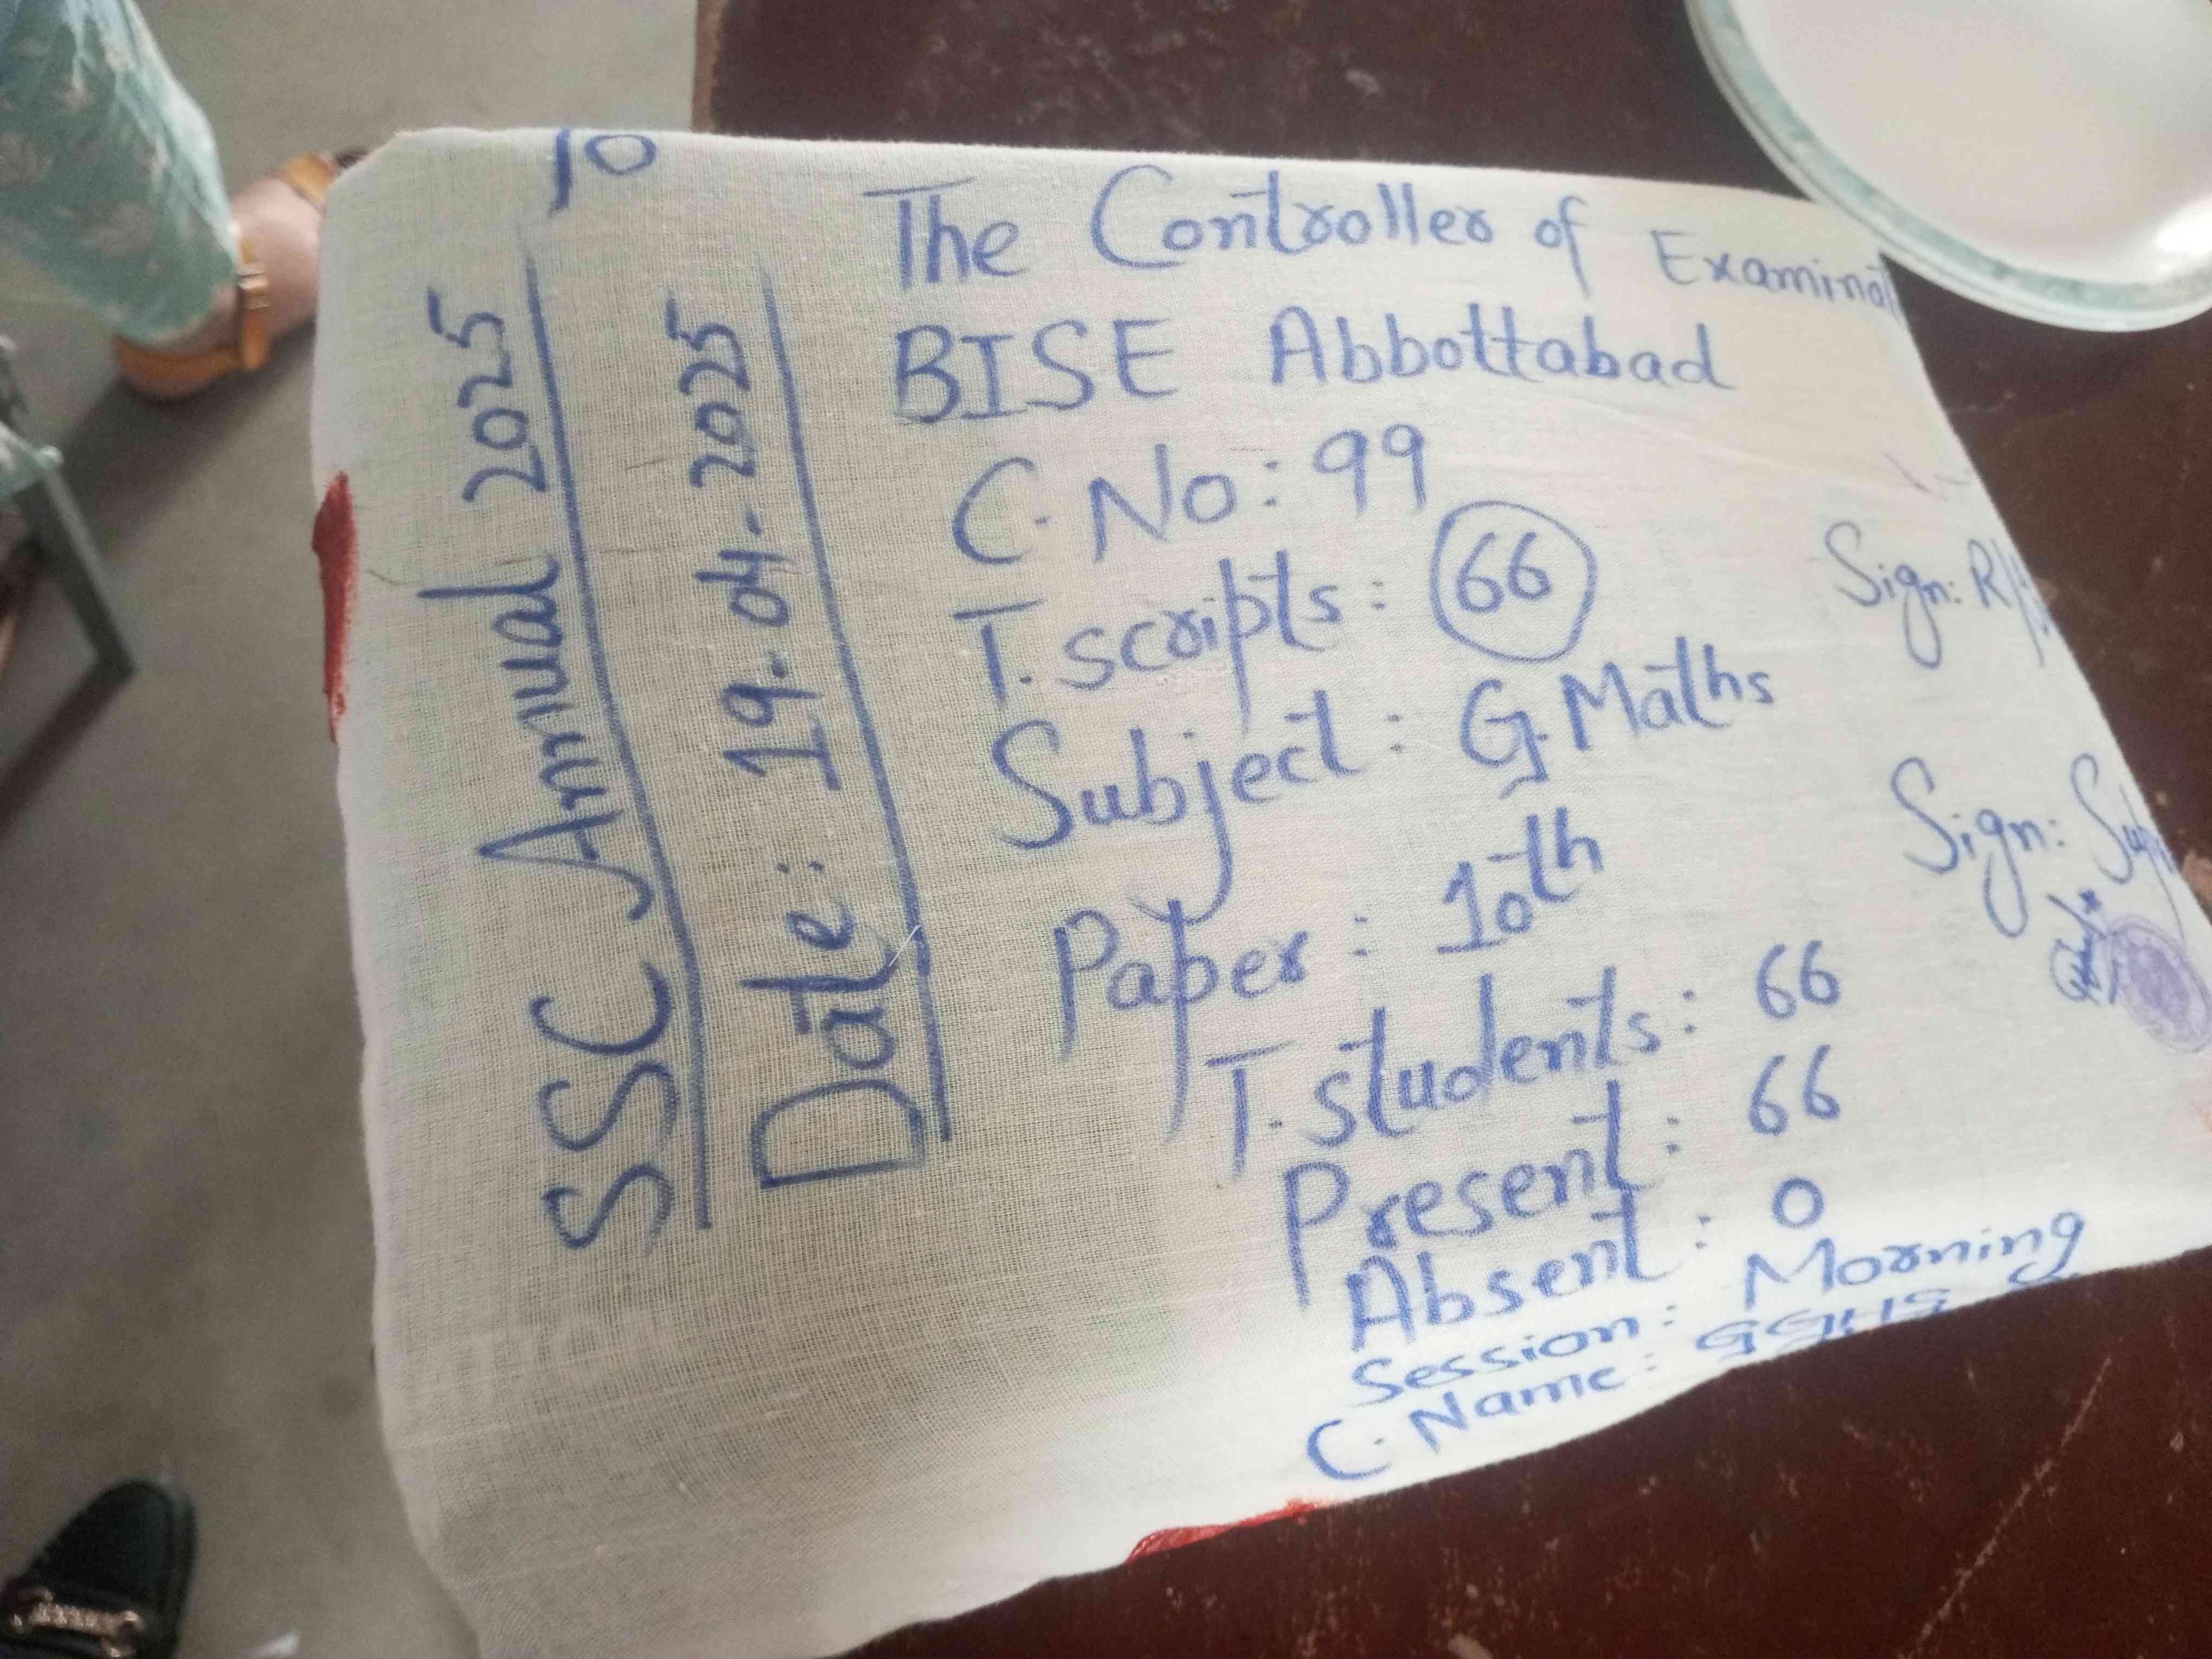 To
The Controller of
BISE Abbottabad
C. No: 99
T. scripts: 66
Subject: G. Maths
Paper: 10th
T. students: 66
Present: 66
Absent: 0
Session: Morning
C. Name: GGHS
SSC Annual 2025
Date: 19-04-2025
Sign:
Sign: